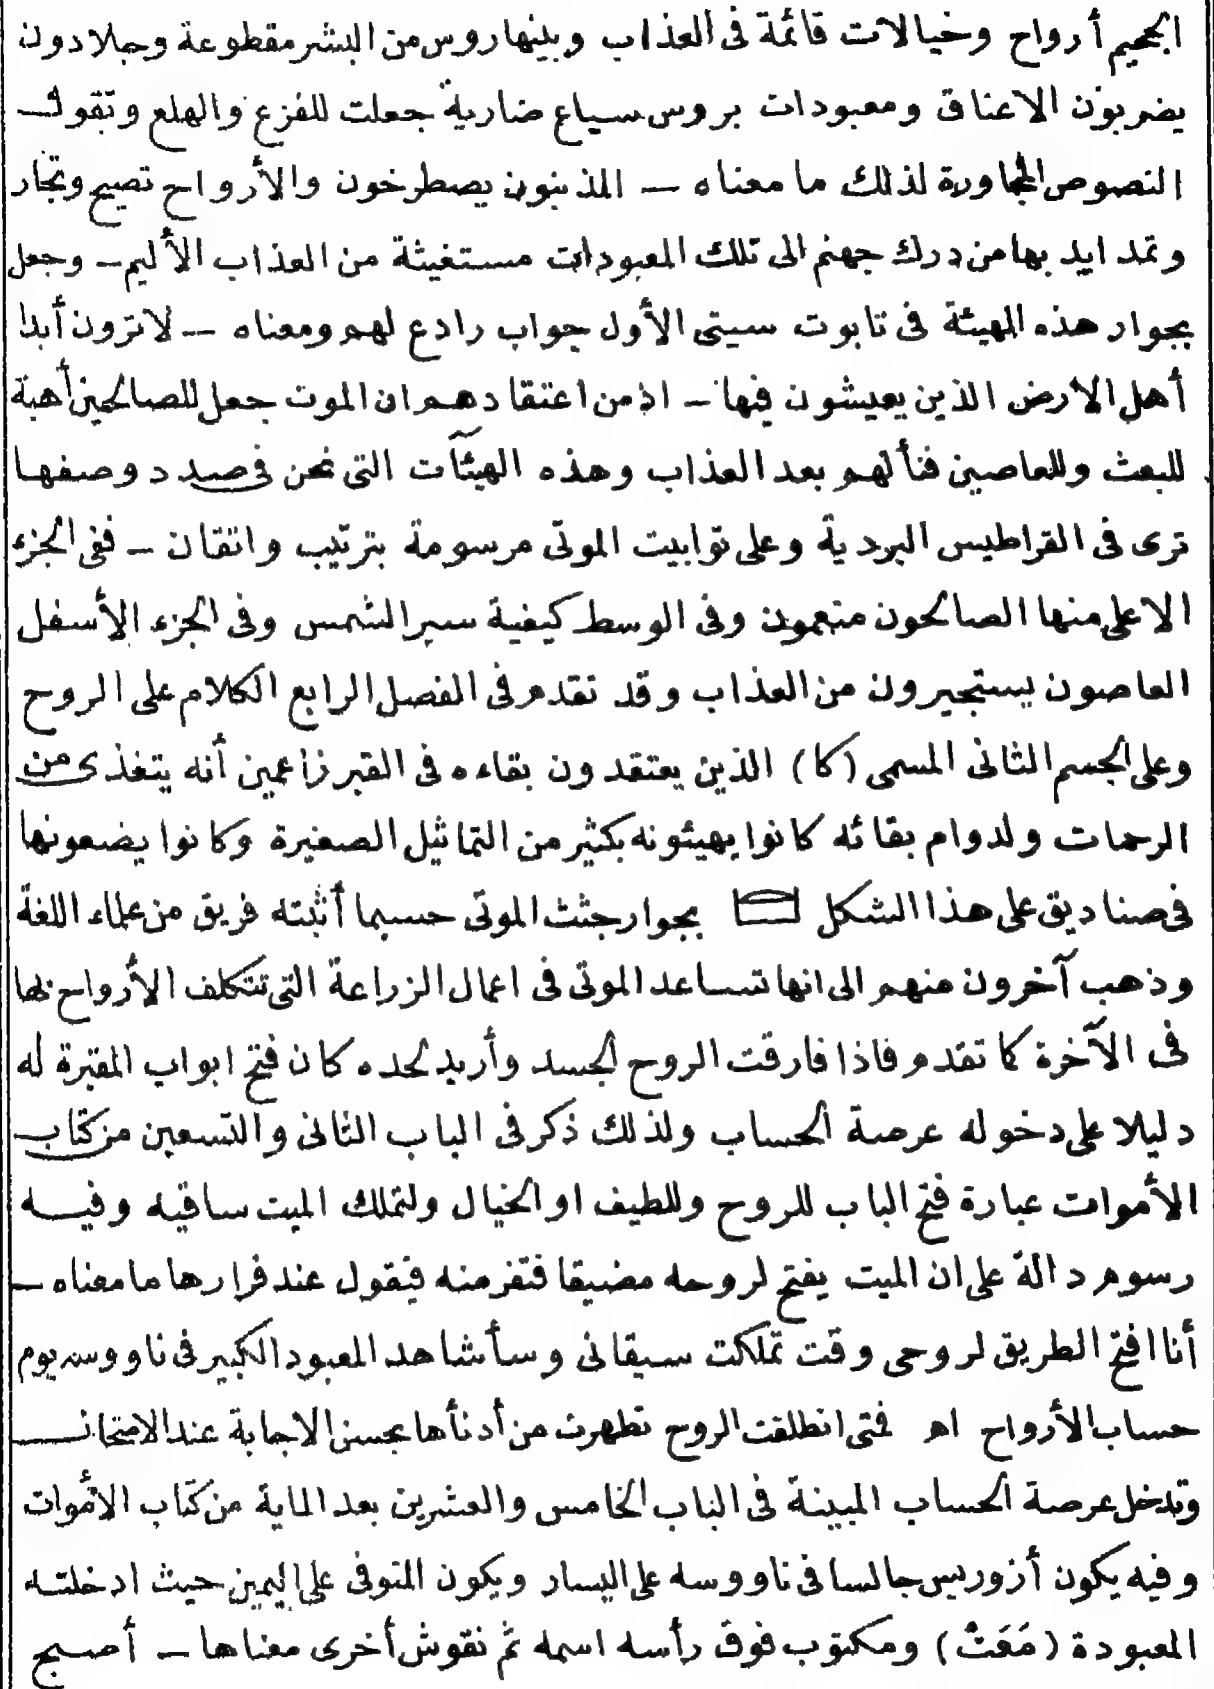 الجحيم أرواح وخيالات قائمة فى العذاب وبينها روس من البشر مقطوعة وجلادون
يضربون الاعناق ومعبودات بروس سباع ضارية جعلت للفزع والهلع وتقول
النصوص المجاورة لذلك ما معناه ـ المذنبون يصطرخون والأرواح تصيح وتجار
وتمد ايد يها من درك جهنم الى تلك المعبودات مستغيثة من العذاب الأليم ـ وجعل
بجوار هذه الهيئة فى تابوت سيتى الأول جواب رادع لهم ومعناه ـ لا ترون أبدا
أهل الارض الذين يعيشون فيها ـ اذ من اعتقادهم ان الموت جعل للصالحين أهبة
للبعث وللعاصين فنألهم بعد العذاب وهذه الهيئآت التى نحن فى صدد وصفها
ترى فى القراطيس البردية وعلى توابيت الموتى مرسومة بترتيب واتقان ـ ففى الجزء
الاعلى منها الصالحون منعمون وفى الوسط كيفية سير الشمس وفى الجزء الأسفل
العاصون يستجيرون من العذاب وقد تقدم فى الفصل الرابع الكلام على الروح
وعلى الجسم الثانى المسمى (كا) الذين يعتقدون بقاءه فى القبر زاعمين أنه يتغذى من
الرحمات ولدوام بقائه كانوا يهيئونه بكثير من التماثيل الصغيرة وكانوا يضعونها
فى صناديق على هذا الشكل بجوار جثث الموتى حسبما أثبته فريق من علماء اللغة
وذهب آخرون منهم الى انها تساعد الموتى فى اعمال الزراعة التى تتكلف الأرواح بها
فى الآخرة كما تقدم فاذا فارقت الروح الجسد وأريد لحده كان فتح ابواب المقبرة له
دليلا على دخوله عرصة الحساب ولذلك ذكر فى الباب الثانى والتسعين من كتاب
الأموات عبارة فتح الباب للروح وللطيف او الخيال ولتملك الميت ساقيه وفيه
رسوم دالة على ان الميت يفتح لروحه مضيقا فتفر منه فيقول عند فرارها ما معناه ـ
أنا افتح الطريق لروحى وقت تملكت سيقانى وسأشاهد المعبود الكبير فى ناووسه يوم
حساب الأرواح اهـ فمتى انطلقت الروح تطهرت من أدنأها بحسن الاجابة عند الامتحان
وتدخل عرصة الحساب المبينة فى الباب الخامس والعشرين بعد الماية من كتاب الأموات
وفيه يكون أزوريس جالسا فى ناووسه على اليسار ويكون المتوفى على اليمين حيث ادخلته
المعبودة (مَعَتْ) ومكتوب فوق رأسه اسمه ثم نقوش أخرى معناها ـ أصبح